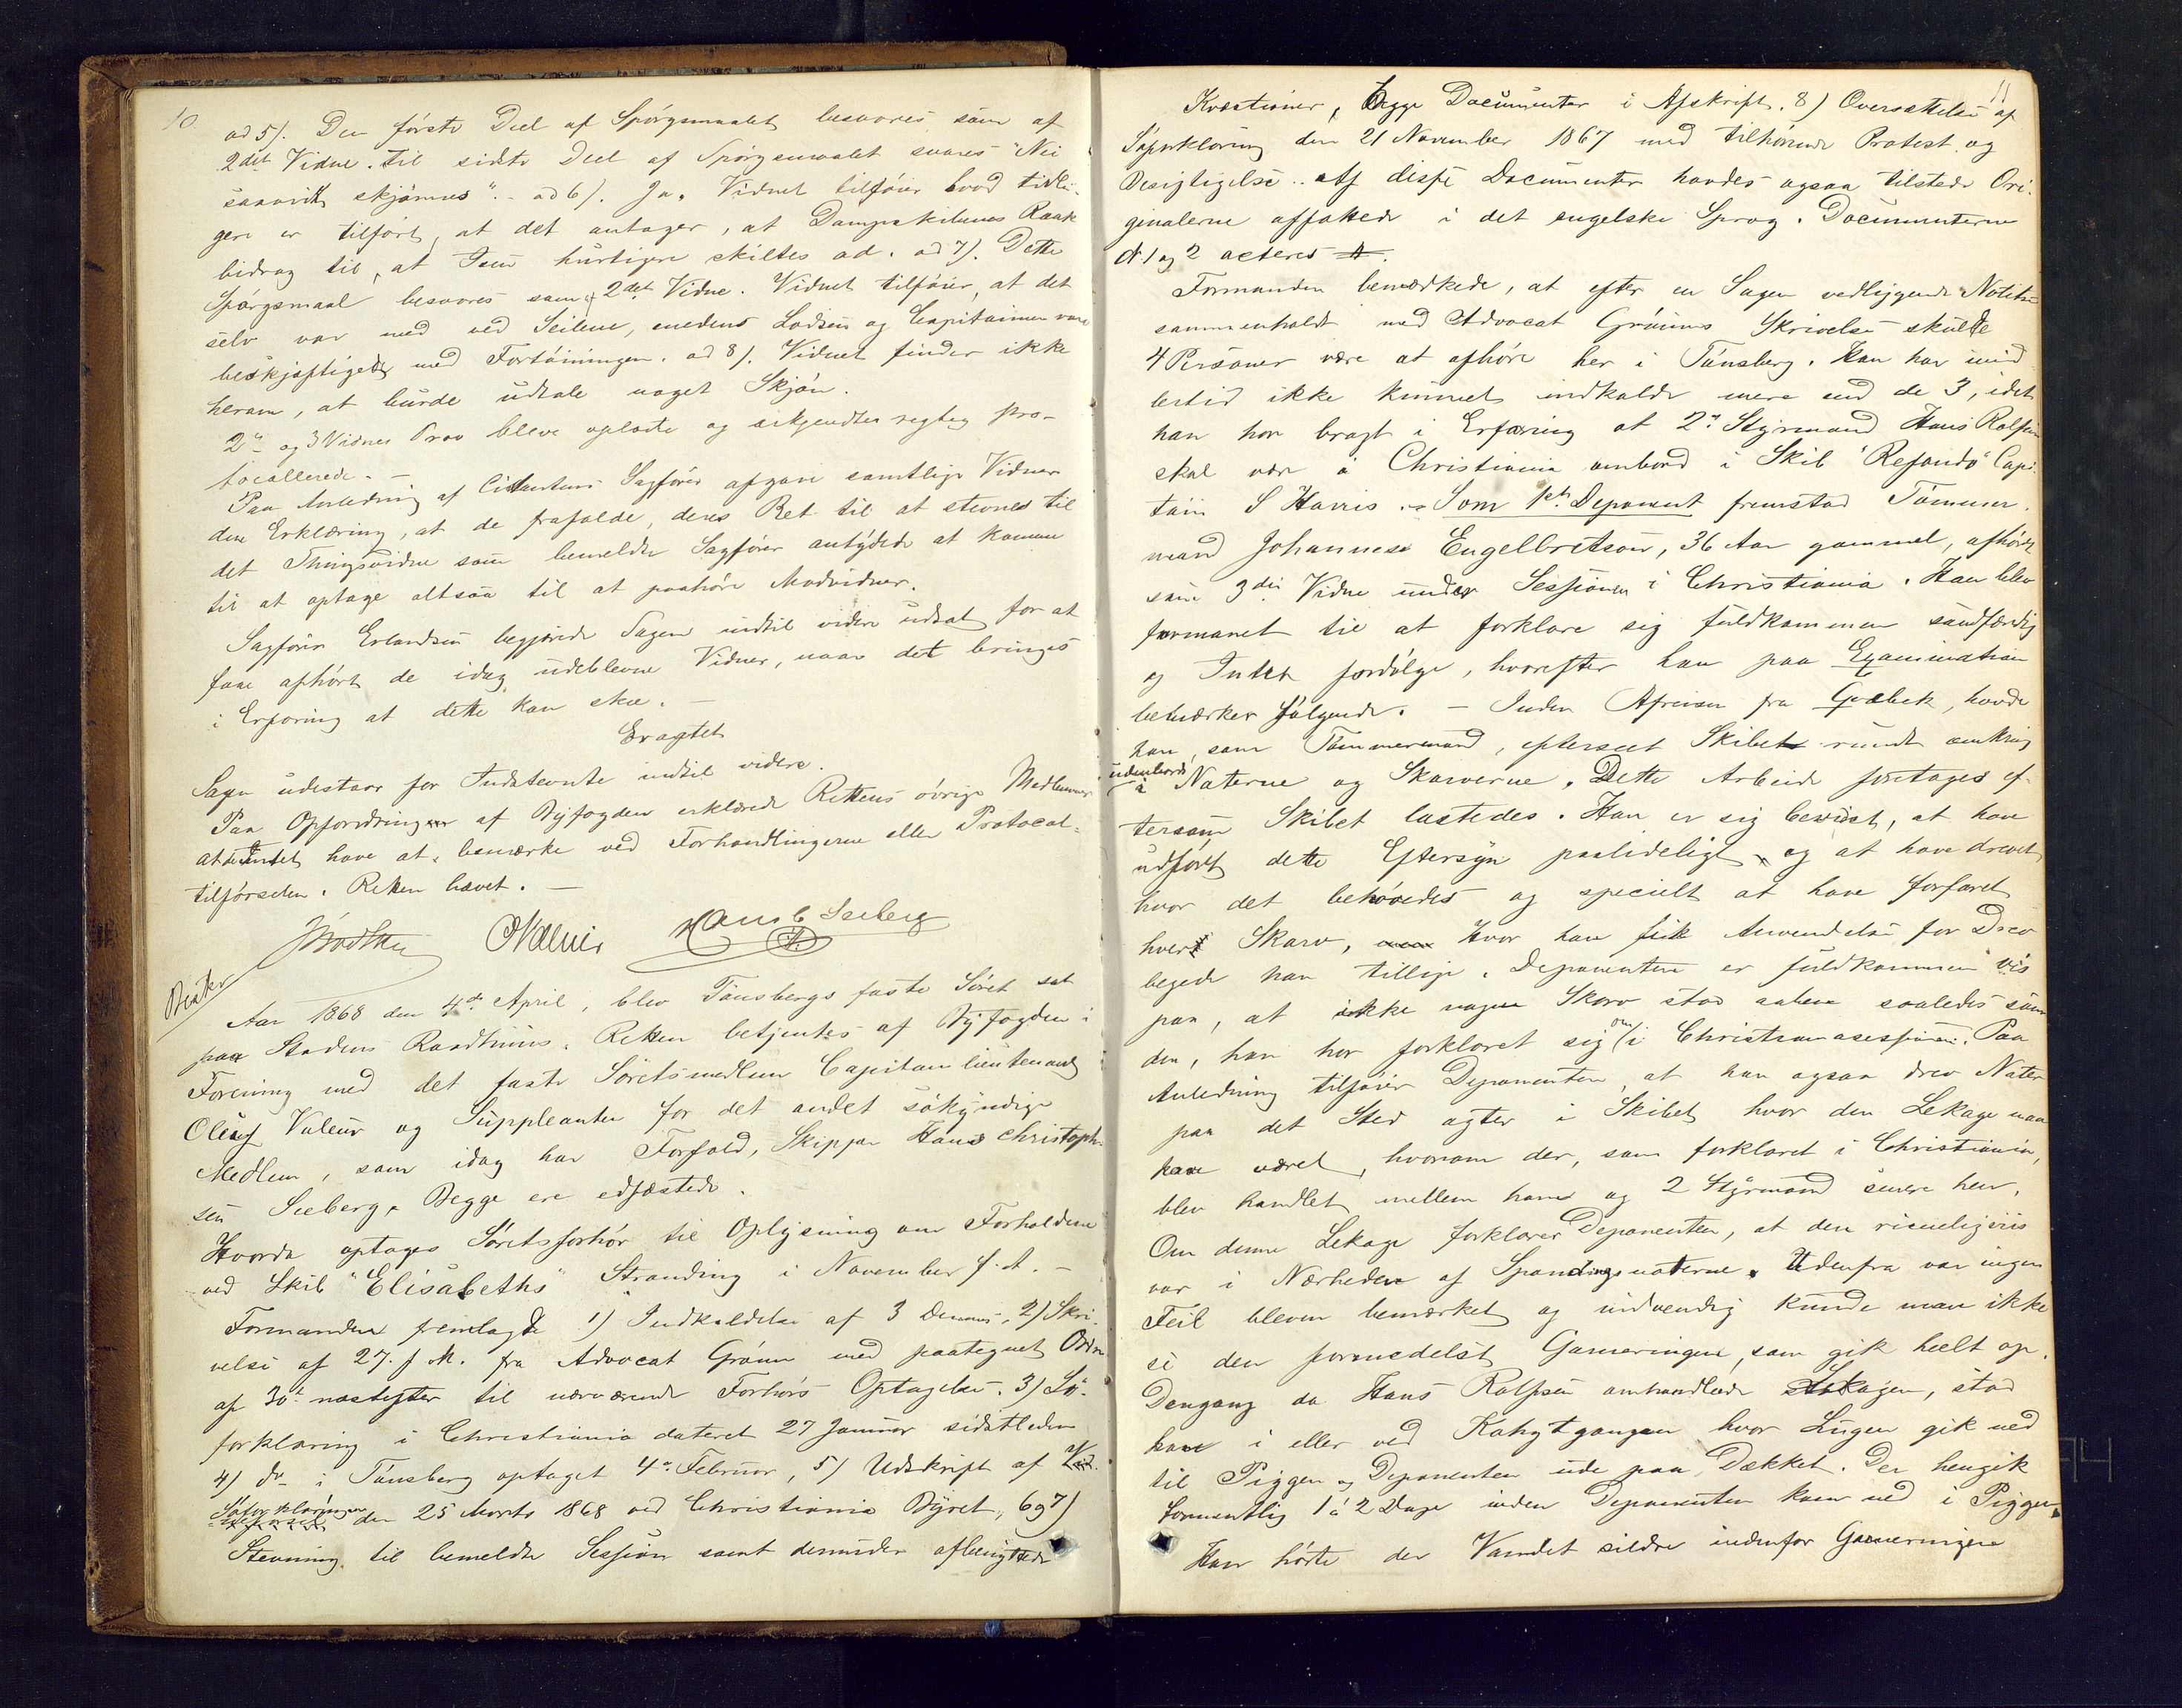 10
ad 5). Den første Deel af Spørgsmaalet besvares som af
2det Vidne. til sidste Deel af Spørgsmaalet svares "Nei
saavidt skjønnes". - ad 6). Ja. Vidnet tilføier hvad tidli-
gere er tilført, at det antager, at Dampskibenes Raak
bidrog til, at Isen hurtigere skiltes ad. ad 7). Dette
Spørgsmaal besvares som af 2det Vidne. Vidnet tilføier, at det
selv var med ved Seilene, medens Lodsen og Capitainen vare
beskjæftigede med Fortøiningen. ad 8). Vidnet finder ikke
herom, at burde udtale noget Skjøn.
2t og 3 Vidnes Prov bleve oplæste og vedkjendtes rigtig pro-
tocollerede. -
Paa Anledning af Citantens Sagfører afgave samtlige Vidner
den Erklæring, at de frafalde, deres Ret til at stevnes til
det Thingsvidne som bemeldte Sagfører antydede at komme
til at optage altsaa til at paahøre Modvidner.
Sagfører Erlandsen begjærede Sagen indtil videre udsat for at
faae afhørt de idag udeblevne Vidner, naar det bringes
i Erfaring at dette kan skee. -
Eragtet
Sagen udestaar for Indstevnte indtil videre.
Paa Opfordring af Byfogden erklærede Rettens øvrige Medlemmer
at Intet have at bemærke ved Forhandlingerne eller Protocol-
tilførselen. Retten hævet. -
OValeur Hans C Seeberg
Beskr
Aar 1868 den 4de April, blev Tønsbergs faste Søret sat
paa Stadens Raadhuus. Retten betjentes af Byfogden i
Forening med det faste Søretsmedlem Capitain lieutenant
Oluf Valeur og Suppleanten for det andet søkyndige
Medlem, som idag har Forfald, Skipper Hans Christoph-
sen Seeberg. Begge ere edfæstede.
Hvorda optages Søretsforhør til Oplysning om Forholdene
ved Skib "Elisabeths" Stranding i November f. A. -
Formanden fremlagde 1) Indkaldelse af 3 Dennes, 2) Skri-
velse af 27. f. M. fra Advocat Grønn med paategnet Ordre
af 30te næstefter til nærværende Forhørs Optagelse. 3) Sø-
forklaring i Christiania dateret 27 Januar sidstleden
4) do i Tønsberg optaget 4de Februar, 5) Udskrift af
Søforklaringer den 25 Marts 1868 ved Christiania Byret, 6 og 7)
Stevning til bemeldte Session samt demnider
11
Kvæstioner, begge Documenter i Afskrift. 8) Oversættelse af
Søforklaring den 21 November 1867 med tilhørende Protest og
Besigtigelse.. Af disse Documenter havdes ogsaa tilstede Ori-
ginalerne affattede i det engelske Sprog. Documenterne
N 1 og 2 acteres
Formanden bemærkede, at efter en Sagen vedliggende Notits
sammenholdt med Advocat Grønns Skrivelse skulde
4 Personer være at afhøre her i Tønsberg. Han har imid
lertid ikke kunnet indkalde mere end de 3, idet
han har bragt i Erfaring at 2en Styrmand Hans Rolfsen
skal være i Christiania ombord i Skib "Refondo" Capi-
tain S Harris. - Som 1ste Deponent fremstod Tømmer-
mand Johannes Engelbretson, 36 Aar gammel, afhørt
som 3die Vidne under Sessionen i Christiania. Han blev
formanet til at forklare sig fuldkommen sandfærdig
og Intet fordølge, hvorefter han paa Examination
bemærker følgende. - Inden Afreisen fra Qvebek, havde
han, som Tømmermand, efterseet Skibet rundt omkring
udenbords
i Naterne og Skarverne. Dette Arbeide foretages ef-
tersom Skibet lastedes. Han er sig bevidst, at have
udført dette Eftersyn paalideligt, og at have drevet
hvor det behøvedes og specielt at have forfaret
hver Skarv, Hvor han fik Anvendelse for Drev
begede han tillige. Deponenten er fuldkommen vis
paa, at ikke nogen Skarv stod aaben saaledes som
den, han har forklaret sig om i Christianiasessionen. Paa
Anledning tilføier Deponenten, at han ogsaa drev Nater
paa det Sted agter i Skibet hvor den Lekage maa
have været, hvorom der, som forklaret i Christiania,
blev handlet mellem ham og 2 Styrmand senere hen.
Om denne Lekage forklarer Deponenten, at den rimeligviis
var i Nærheden af Spandingsnaterne. Udenfra var ingen
Feil bleven bemærket og indvendig kunde man ikke
se den formedelst Garneringen, som gik heelt op.
Dengang da Hans Rolfsen omhandlede Lekagen, stod
han i eller ved Kahytgangen hvor Lugen gik ned
til Piggen og Deponenten ude paa Dækket. Der hengik
formentlig 1 à 2 Dage inden Deponenten kom ned i Piggen
Han hørte der Vandet sildre indenfor Garneringen